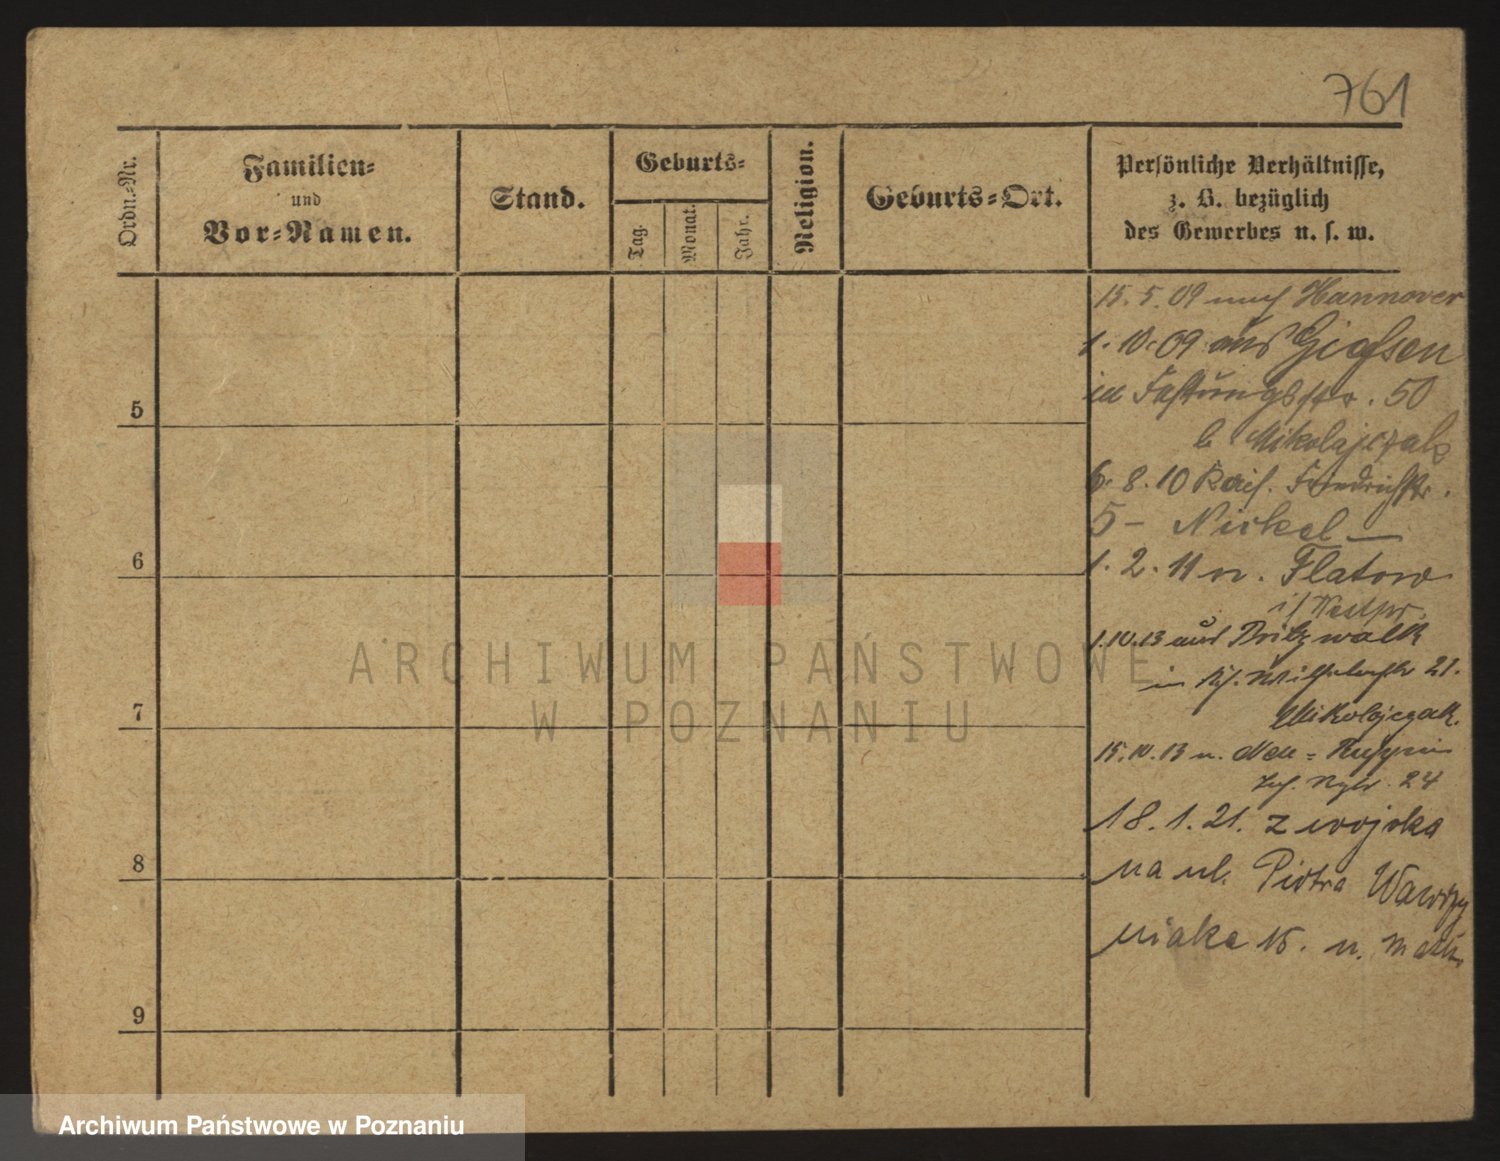 761
Ordn.-Nr.
Familien-
und
Vor-Namen.
Stand.
Geburts-
Tag.
Monat.
Jahr.
Religion.
Geburts-Ort.
Persönliche Verhältnisse,
z. B. bezüglich
des Gewerbes u. s. w.
15. 5. 09 nach Hannover
1. 10. 09 aus
in Festungsstr. 50
b Mikolajczak
6. 8. 10 Kais. Friedrichstr.
5 - Nickel -
1. 2. 11 n. Flatow
i/ Westpr.
1.10.13 aus Pritzwalk
in 21.
Mikolajczak.
15.10.13 n. Neu-Ruppin
Inf. Rgt. 24
18. 1. 21. z wojska
na ul. Piotra Wawrzy
niaka 15. u. matki
5
6
7
8
9
ARCHIWUM PAŃSTWOWE
W POZNANIU
Archiwum Państwowe w Poznaniu